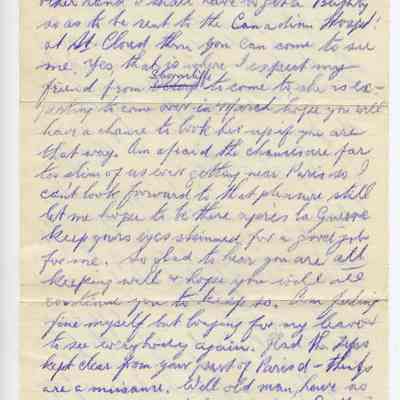 other hand I shall have to get a Blighty
so as to be sent to the Canadian Hospl
at St. Cloud then you can come to see
me. Yes that is where I expect my
friend from Shorncliffe to come to, she is ex-
pecting to come over in March hope you will
have a chance to look her up if you are
that way. Am afraid the chances are far
too slim of us ever getting near Paris so I
can't look forward to that pleasure still
let me hope to be there après la Guerre
keep yours eyes skinned for a good job
for me. So glad to hear you are all
keeping well & hope you will all
continue to keep so. Am feeling
fine myself but longing for my leave
to see everybody again. Glad the Zepps
kept clear from your part of Paris &
are a nuisance. Well old man, have no